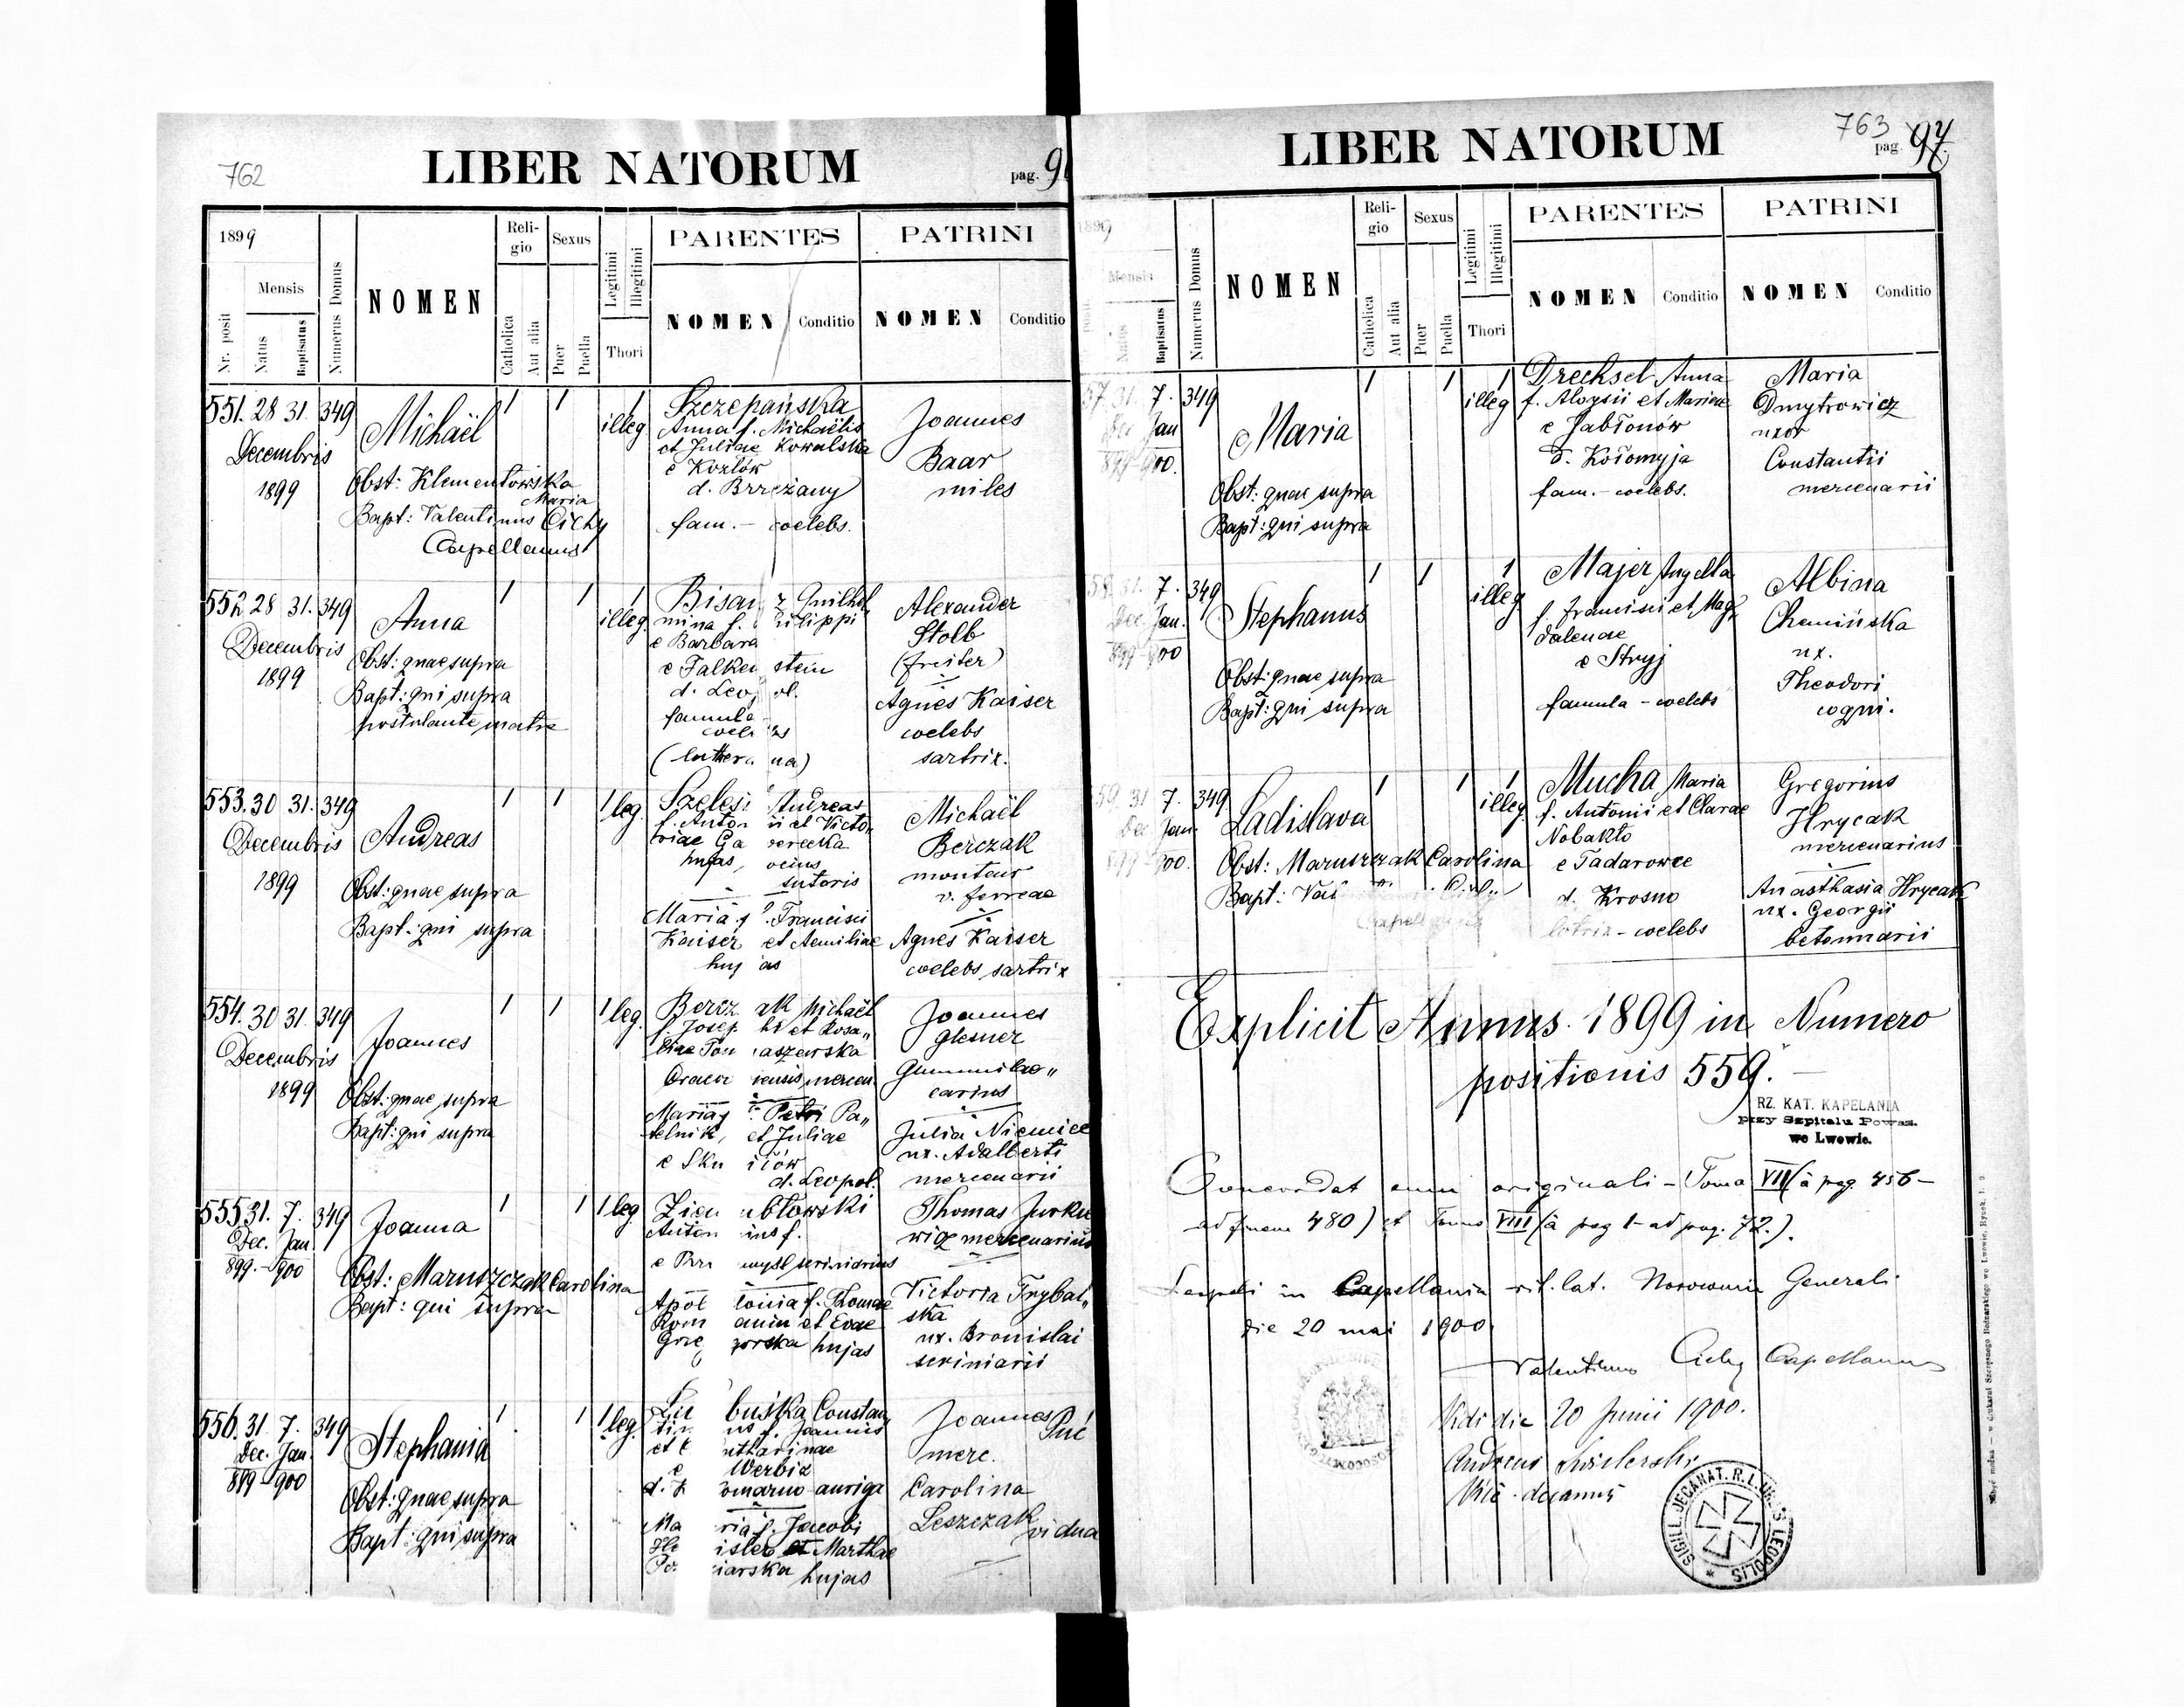 762
LIBER NATORUM
pag. 9
1899
Mensis
Nr. posit
Natus
Baptisatus
Numerus Domus
NOMEN
Reli-
gio
Catholica
Aut alia
Sexus
Puer
Puella
Legitimi
Illegitimi
Thori
PARENTES
NOMEN
Conditio
PATRINI
NOMEN
Conditio
551. 28 31. 349
Decembris
1899
Michaël
Obst: Klementowska
Maria
Bapt: Valentinus Cichy
Capellanus
1 1 1
illeg
Szczepańska
Anna f. Michaëlis
et Juliae Kowalska
e Kozłów
d. Brzeżany
fam. - coelebs.
Joannes
Baar
miles
552 28 31. 349
Decembris
1899
Anna
Obst: quae supra
Bapt: qui supra
postulante matre
1 1 1
illeg.
Bisan z Guilhel
mina f. ilippi
e Barbara
e Falken stein
d. Leo ol.
famula -
(luthera na)
Alexander
Stolb
(freiter)
Agnes Kaiser
coelebs
sartrix.
553. 30 31. 349
Decembris
1899
Andreas
Obst: quae supra
Bapt: qui supra
1 1 1 leg.
Szeles Andreas
f. Anton ii et Victo,
riae Ga
hujas, ocius
sutoris
Maria f. Francisci
Kaiser et Aemiliae
huj as
Michaël
Berczak
monteur
v. ferreae
Agnes Kaiser
coelebs sartrix
554. 30 31. 349
Decembris
1899
Joannes
Obst: quae supra
Bapt: qui supra
1 1 1 leg.
Bercz ak Michaël
f. Josep hi et Rosa„
liae Tom aszewska
Cracov iensis, mercen.
Maria f. Petri Pa„
telnik, et Juliae
e Skn iłów
d. Leopol.
Joannes
Glesner
Gummilao„
carius
Julia Niemiec
ux. Adalberti
mercenarii
555 31. 7. 349
Dec. Jan
899.-900
Joanna
Obst: Maruszczak Carolina
Bapt: qui supra
1 1 1 leg
Ziem błowski
Anton ius f.
e Prz emysl scriniarius
Apol lonia f. Thomae
Rom anin et Evae
Grze gorska hujas
Thomas Jurke
wicz mercenarius
Victoria Trybal„
ska
ux. Bronislai
scriniarii
556. 31. 7. 349
Dec. Jan.
899-900
Stephania
Obst: quae supra
Bapt: qui supra
1 1 1 leg.
buśka Constan,
tin us f. Joannis
et C atharinae
e Werbiz
auriga
Ma ria f. Jacobi
et Marthae
iarska hujas
Joannes Puć
merc.
Carolina
Leszczak vidua
763
LIBER NATORUM
pag. 97.
1899
Mensis
Natus
Baptisatus
Numerus Domus
NOMEN
Reli-
gio
Catholica
Aut alia
Sexus
Puer
Puella
Legitimi
Illegitimi
Thori
PARENTES
NOMEN
Conditio
PATRINI
NOMEN
Conditio
57. 31. 7. 349
Dec Jan
899-900.
Maria
Obst: quae supra
Bapt: qui supra
1 1 1
illeg
Drechsel Anna
f. Aloysii et Mariae
e Jabłonów
d. Kołomyja
fam. - coelebs.
Maria
Dmytrowicz
uxor
Constantii
mercenarii
58. 31. 7. 349
Dec. Jan.
899-900
Stephanus
Obst: quae supra
Bapt: qui supra
1 1 1
illeg
Majer Angella
f. Francisci et Mag,
dalenae
e Stryj
famula - coelebs
Albina
Chemińska
ux.
Theodori
coqui.
59. 31 7. 349
Dec Jan
899-900.
Ladislava
Obst: Maruszczak Carolina
Bapt:
1 1 1
illeg.
Mucha Maria
f. Antonii et Clarae
Nobakło
e Tadarowce
d. Krosno
lotrix - coelebs
Gregorius
Hrycak
mercenarius
Anasthasia Hrycak
ux. Georgii
betonnarii
Explicit Annus 1899 in Numero
positionis 559. -
RZ. KAT. KAPELANIA
przy Szpitalu Powsz.
we Lwowie.
Concordat cum originali - Tomo VII (à pag. 456 -
ad finem 480) et Tomo VIII (à pag 1 - ad pag. 72.).
Leopoli in Capellania rit. lat. Nosocomii Generali
die 20 mai 1900.
Valentinus Cichy Capellanus
Vidi die 20 Junii 1900.
Vice-decanus
SIGILL. DECANAT. R. L. URBIS LEOPOLIS